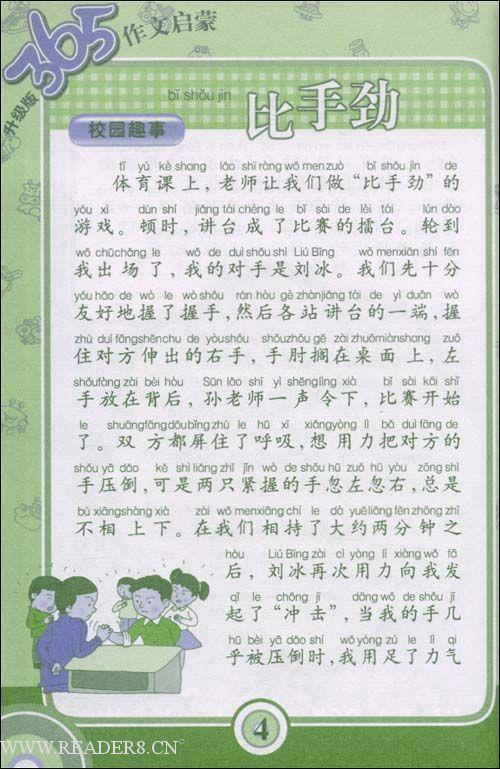 365作文启蒙
升级版
bǐ shǒu jìn
比手劲
校园趣事
tǐ yù kè shang lǎo shī ràng wǒ men zuò bǐ shǒu jìn de
体育课上，老师让我们做“比手劲”的
yóu xì dùn shí jiǎng tái chéng le bǐ sài de lèi tái lún dào
游戏。顿时，讲台成了比赛的擂台。轮到
wǒ chū chǎng le wǒ de duì shǒu shì Liú Bīng wǒ men xiān shí fēn
我出场了，我的对手是刘冰。我们先十分
yǒu hǎo de wò le wò shǒu rán hòu gè zhàn jiǎng tái de yì duān wò
友好地握了握手，然后各站讲台的一端，握
zhù duì fāng shēn chu de yòu shǒu shǒu zhǒu gē zài zhuō miàn shang zuǒ
住对方伸出的右手，手肘搁在桌面上，左
shǒu fàng zài bèi hòu Sūn lǎo shī yì shēng lìng xià bǐ sài kāi shǐ
手放在背后，孙老师一声令下，比赛开始
le shuāng fāng dōu bǐng zhù le hū xī xiǎng yòng lì bǎ duì fāng de
了。双方都屏住了呼吸，想用力把对方的
shǒu yā dǎo kě shì liǎng zhī jǐn wò de shǒu hū zuǒ hū yòu zǒng shì
手压倒，可是两只紧握的手忽左忽右，总是
bù xiāng shàng xià zài wǒ men xiāng chí le dà yuē liǎng fēn zhōng zhī
不相上下。在我们相持了大约两分钟之
hòu Liú Bīng zài cì yòng lì xiàng wǒ fā
后，刘冰再次用力向我发
qǐ le chōng jī dāng wǒ de shǒu jǐ
起了“冲击”，当我的手几
hū bèi yā dǎo shí wǒ yòng zú le lì qi
乎被压倒时，我用足了力气
4
WWW.READER8.CN